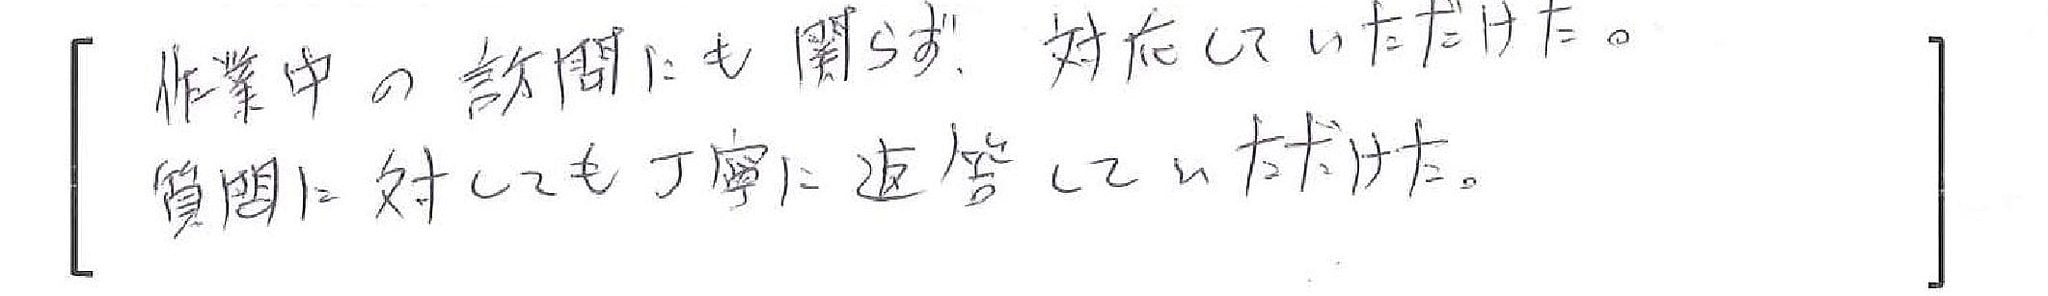 作業中の訪問にも関らず、対応していただけた。
質問に対しても丁寧に返答していただけた。